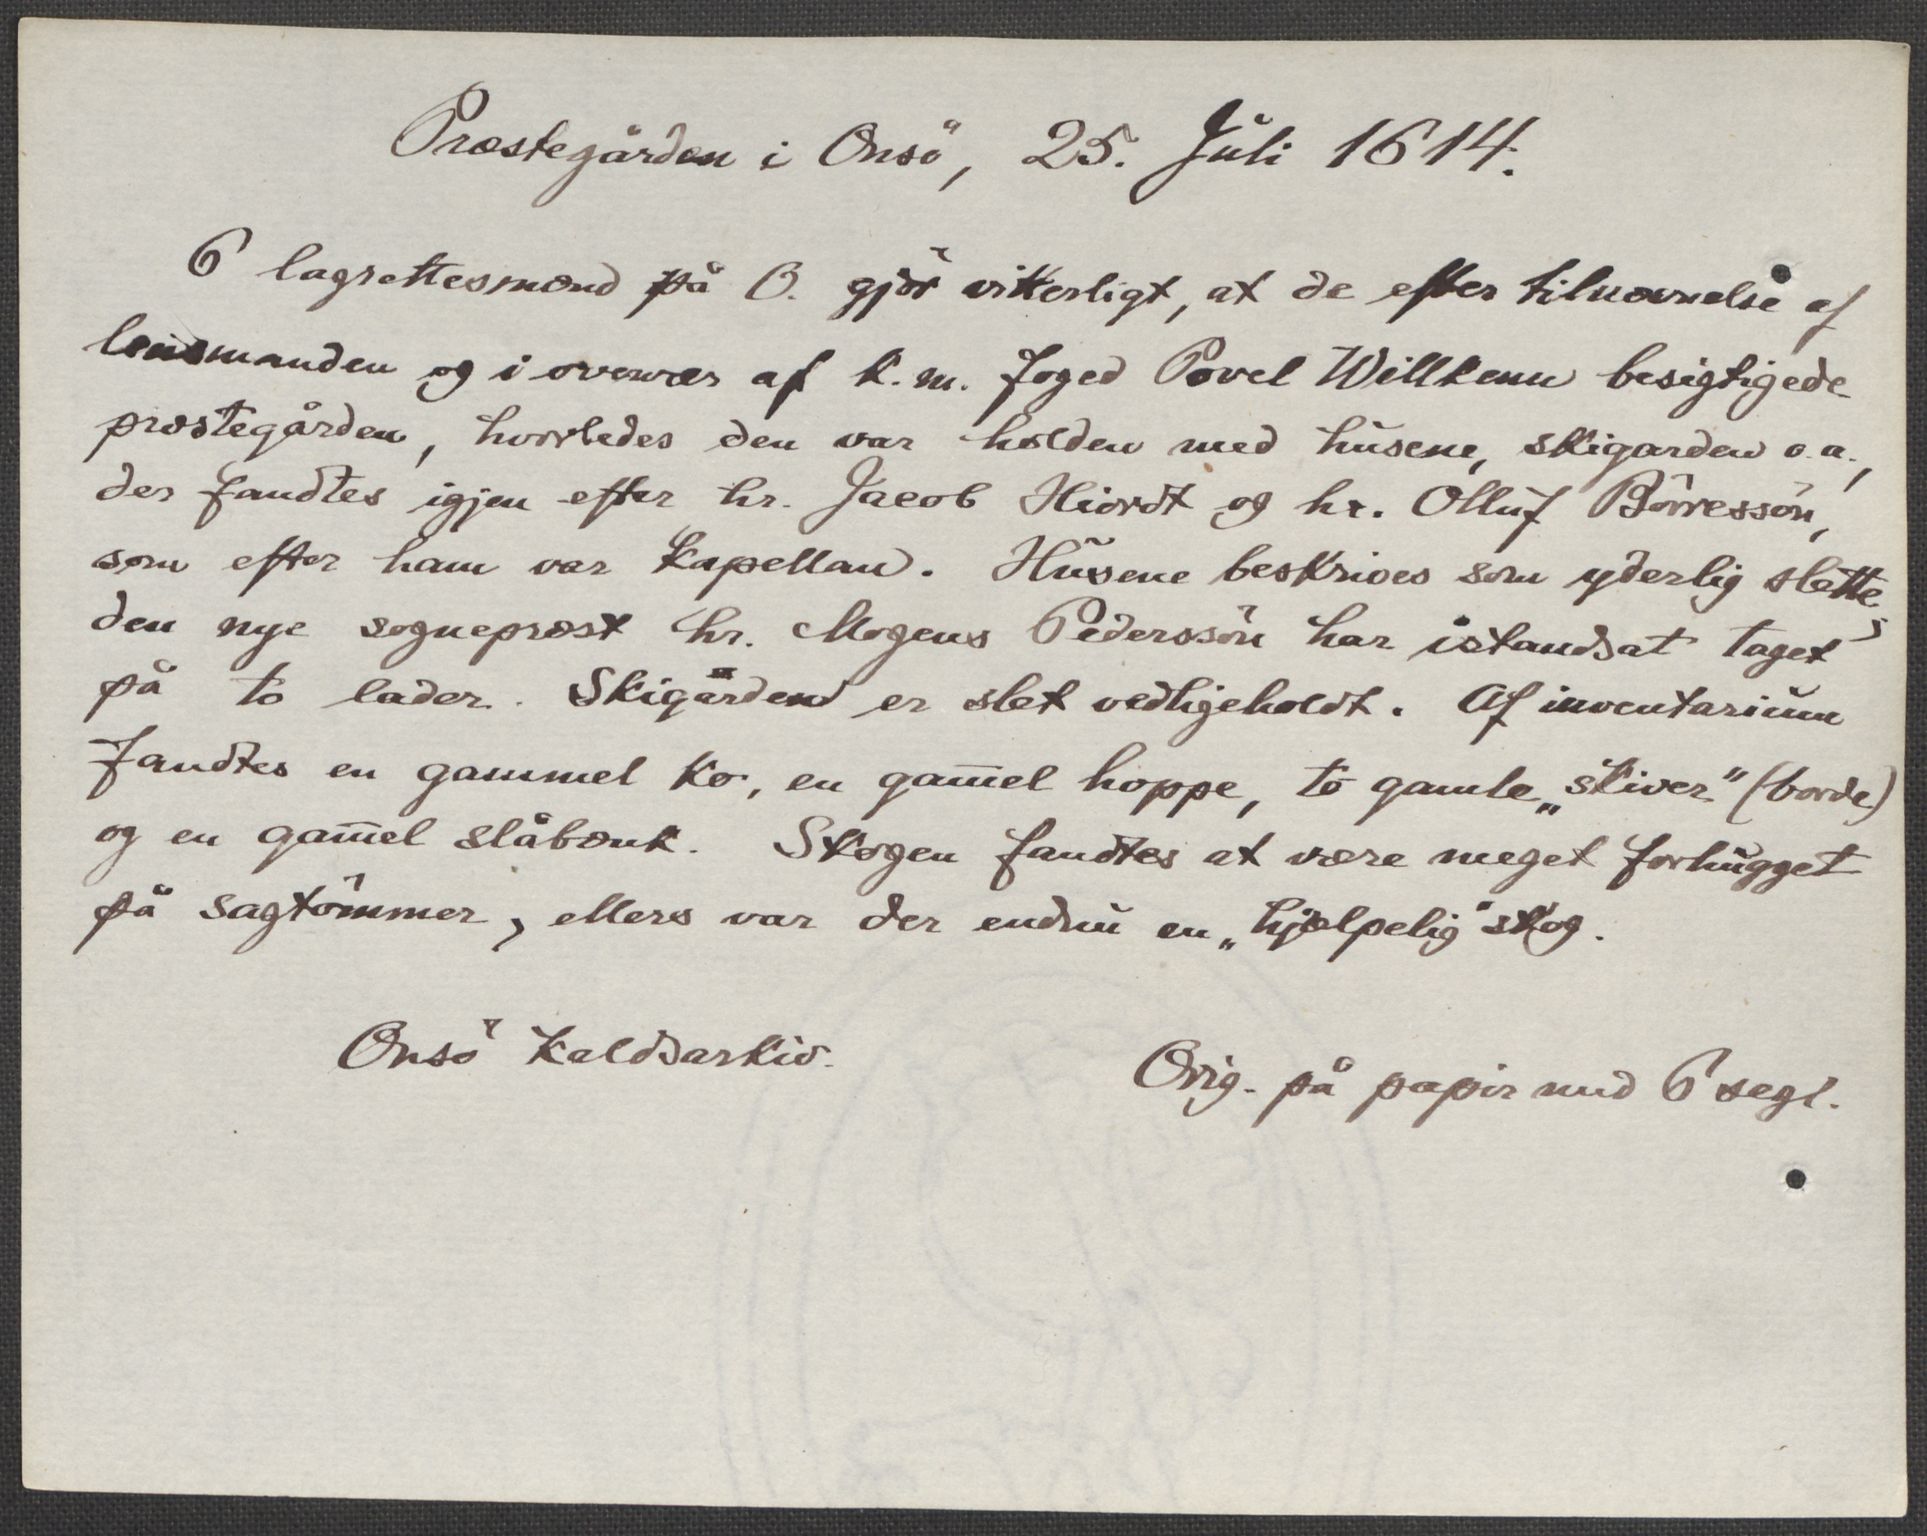 Præstegården i Onsö, 25. Juli 1614.
6 lagrettesmænd på O. gjör vitterligt, at de efter tilnævnelse af
lensmanden og i overvær af k. m. foged Povel Willkenn besigtigede
præstegården, hvorledes den var holden med husene, skigarden o. a.,
der fandtes igjen efter hr. Jacob Hiordt og hr. Olluf Börressön,
som efter ham var kapellan. Husene beskrives som yderlig slette,
den nye sogneprest hr. Mogens Pederssön har istandsat taget
på to lader. Skigården er slet vedligeholdt. Af inventarium
fandtes en gammel ko, en gam̄el hoppe, to gamle „skiver" (borde)
og en gam̄el slåbænk. Skogen fandtes at være meget forhugget
på sagtömmer, ellers var der endnu en „hjælpelig" skog.
Onsö kaldsarkiv.
Orig. på papir med 6 segl.